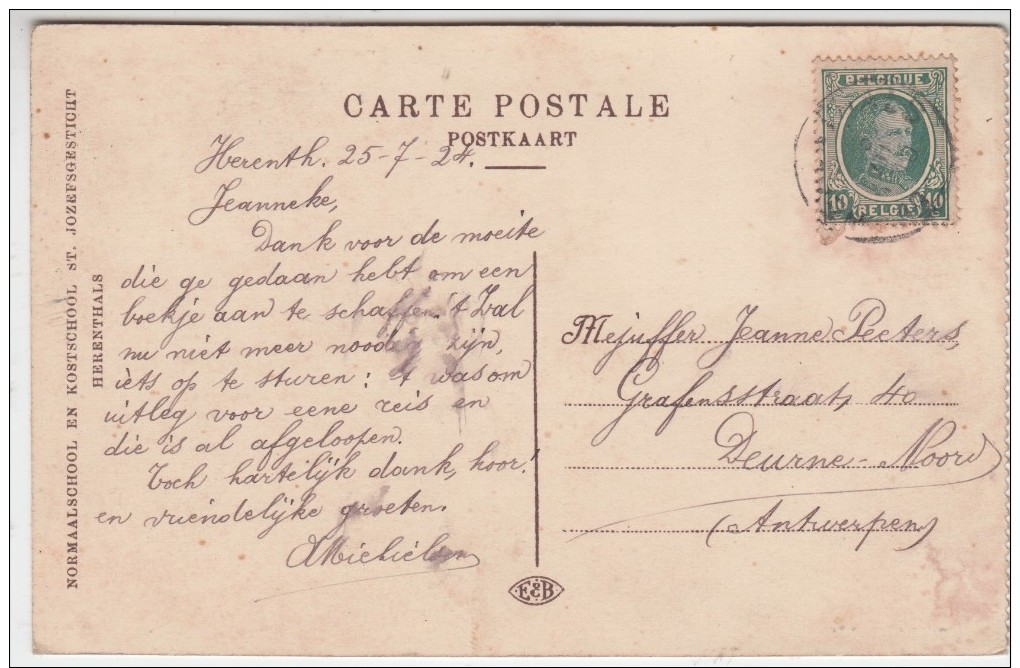 CARTE POSTALE
POSTKAART
Herenth. 25-7-24.
Jeanneke,
Dank voor de moeite
die ge gedaan hebt om een
boekje aan te schaffen. 't Zal
nu niet meer noodig zijn,
iets op te sturen: 't was om
uitleg voor eene reis en
die is al afgeloopen.
Toch hartelijk dank, hoor!
en vriendelijke groeten.
NORMAALSCHOOL EN KOSTSCHOOL ST. JOZEFSGESTICHT
HERENTHALS
BELGIQUE
10 BELGIË 10
Mejuffer Jeanne Peeters,
Grafensstraat, 40
Deurne-Noord
(Antwerpen)
E&B